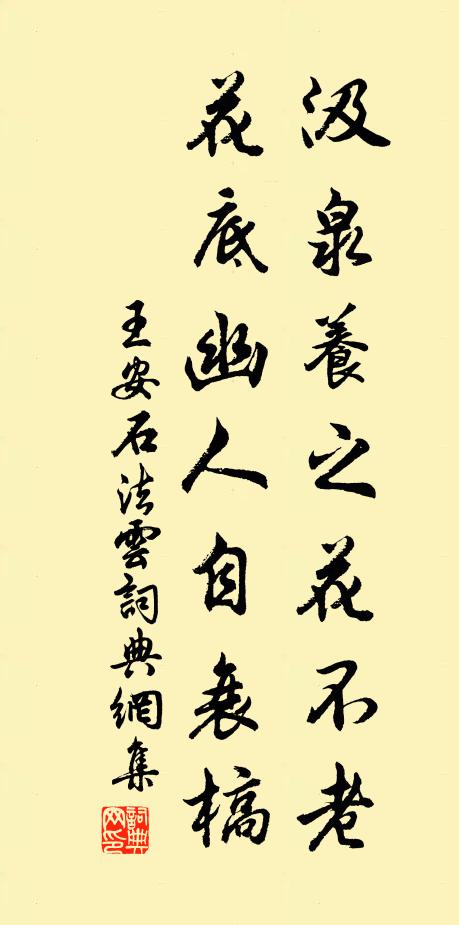 汲泉養之花不老
花底幽人自衰槁
王安石法雲詞典網集
詞典網印